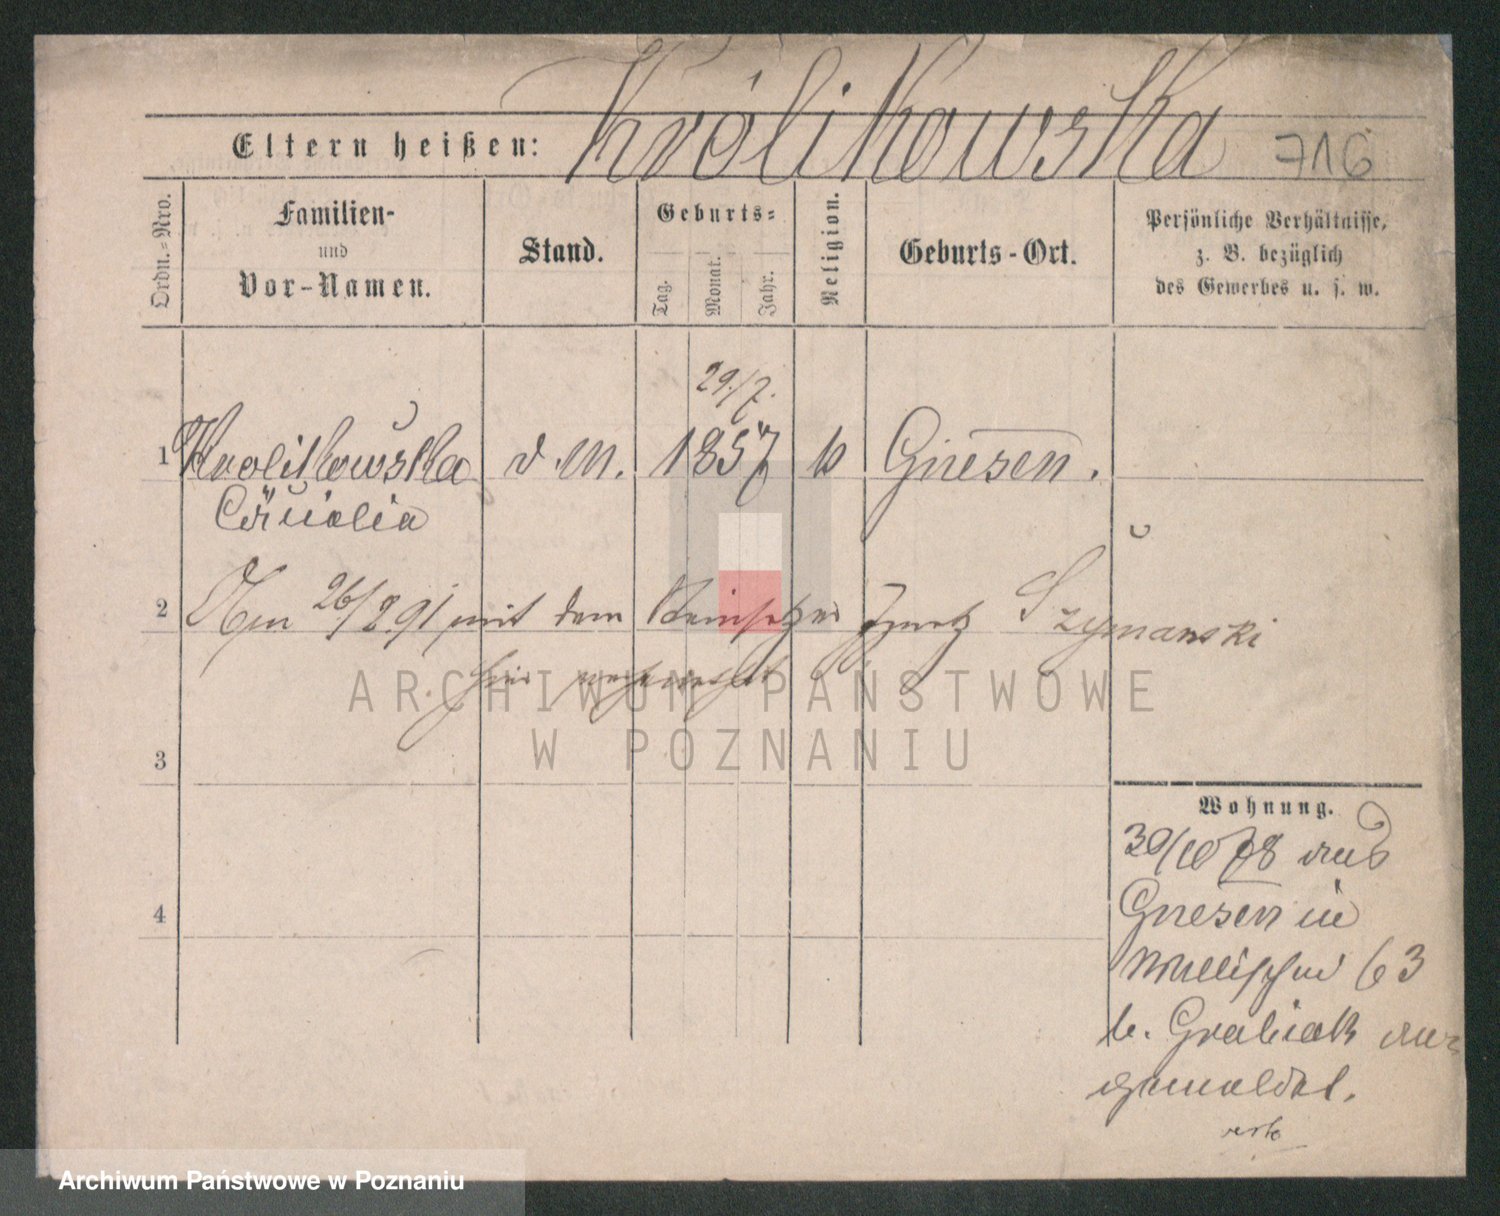 Królikowska
Eltern heißen:
716
Ordn.-Nro.
Familien-
und
Vor-Namen.
Stand.
Geburts-
Tag.
Monat.
Jahr.
Religion.
Geburts-Ort.
Persönliche Verhältnisse,
z. B. bezüglich
des Gewerbes u. s. w.
29/7.
1 Krolikowska d. M. 1857 k Gnesen.
2 Am 26/8 91 mit dem Steinsetzer Ignatz Szymanski
hier verheirathet
ARCHIWUM PAŃSTWOWE
W POZNANIU
3
4
Wohnung.
30/10 78 aus
Gnesen in
Wallischei 63
b. Grabiak an-
gemeldet.
Archiwum Państwowe w Poznaniu